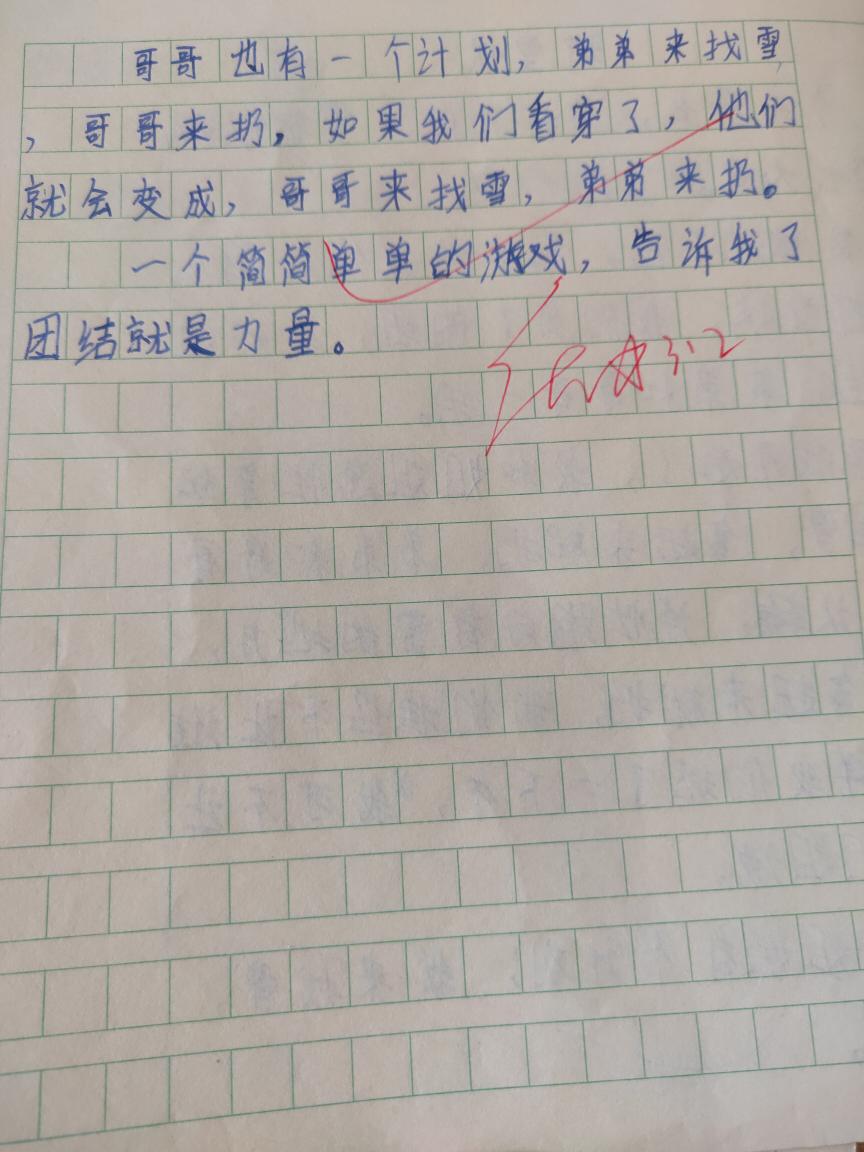 哥哥也有一个计划，弟弟来找雪
，哥哥来扔，如果我们看穿了，他们
就会变成，哥哥来找雪，弟弟来扔。
一个简简单单的游戏，告诉我了
团结就是力量。
3.2